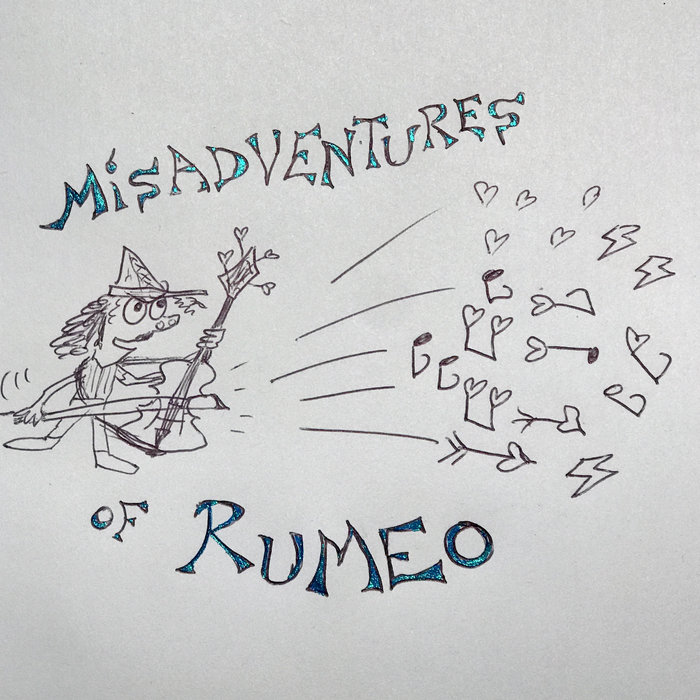 MiSADVENTURES
OF RUMEO